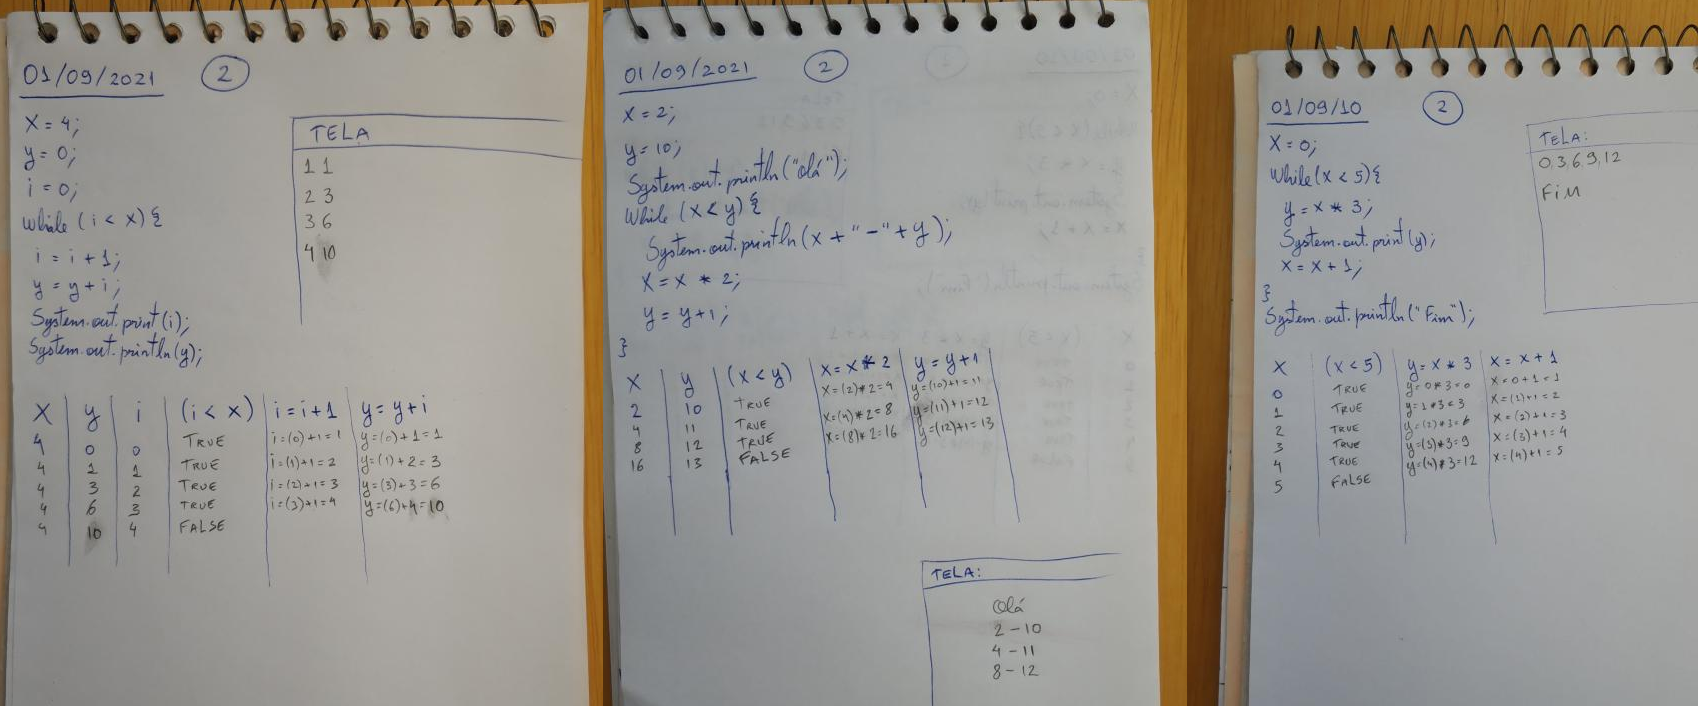 01/09/2021 2
X = 4;
y = 0;
i = 0;
While (i < x) {
i = i + 1;
y = y + i;
System.out.print(i);
System.out.println(y);
TELA
1 1
2 3
3 6
4 10
X y i (i < x) i = i + 1 y = y + i
4 0 0 TRUE i=(0)+1=1 y=(0)+1=1
4 1 1 TRUE i=(1)+1=2 y=(1)+2=3
4 3 2 TRUE i=(2)+1=3 y=(3)+3=6
4 6 3 TRUE i=(3)+1=4 y=(6)+4=10
4 10 4 FALSE
01/09/2021 2
X = 2;
y = 10;
System.out.println("Olá");
While (x < y) {
System.out.println(x + "-" + y);
X = x * 2;
y = y + 1;
}
X y (x < y) X = x * 2 y = y + 1
2 10 TRUE x=(2)*2=4 y=(10)+1=11
4 11 TRUE x=(4)*2=8 y=(11)+1=12
8 12 TRUE x=(8)*2=16 y=(12)+1=13
16 13 FALSE
TELA:
Olá
2 - 10
4 - 11
8 - 12
01/09/10 2
X = 0;
While (x < 5) {
y = x * 3;
System.out.print(y);
X = x + 1;
}
System.out.println("Fim");
TELA:
0,3,6,9,12
Fim
X (x < 5) y = x * 3 X = x + 1
0 TRUE y=0*3=0 x=0+1=1
1 TRUE y=1*3=3 x=(1)+1=2
2 TRUE y=(2)*3=6 x=(2)+1=3
3 TRUE y=(3)*3=9 x=(3)+1=4
4 TRUE y=(4)*3=12 x=(4)+1=5
5 FALSE